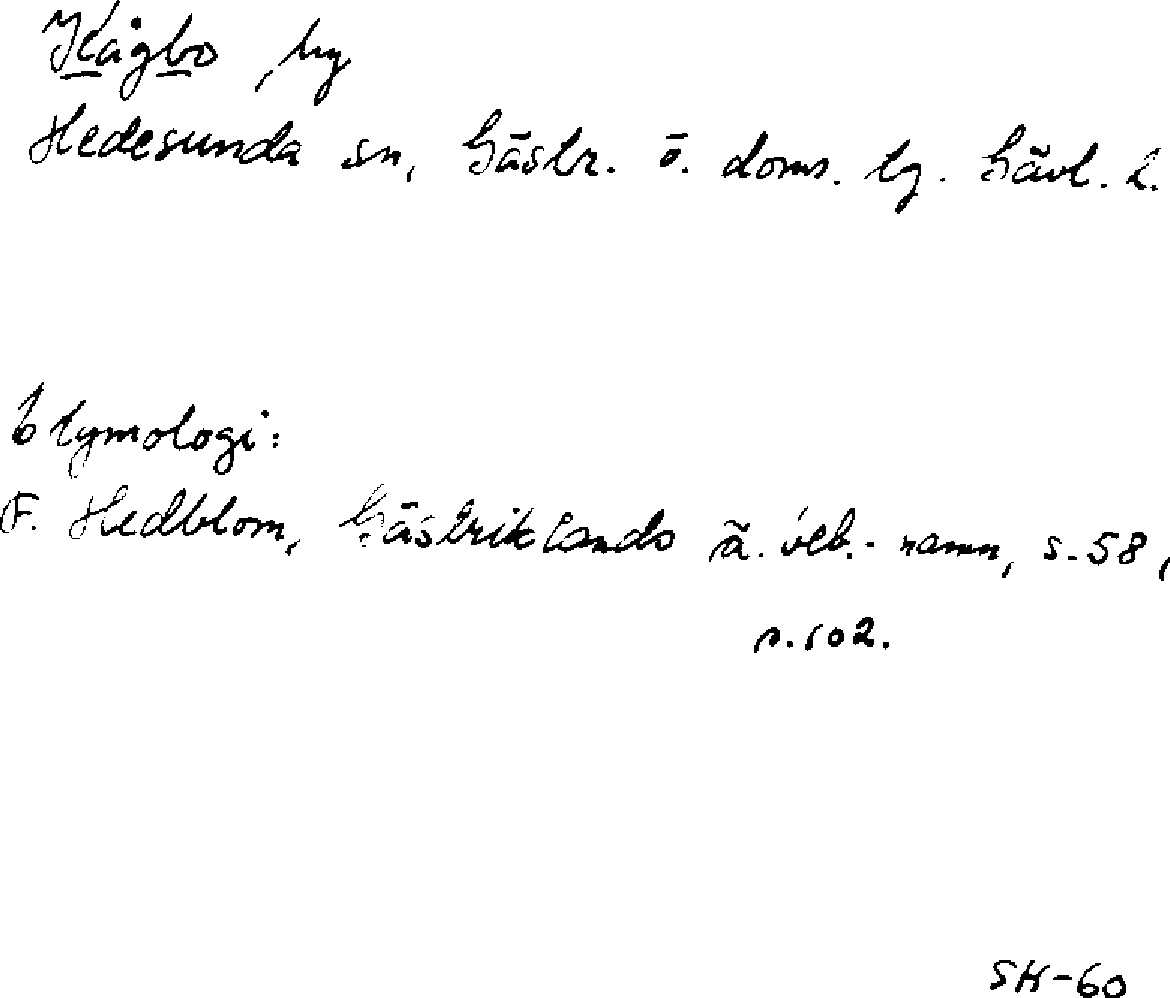 Kågbo, by
Hedesunda sn, Gästr. ö. doms. lg. Gävl. l.
Etymologi:
F. Hedblom, Gästriklands ä. beb.-namn, s. 58,
s. 102.
SH-60